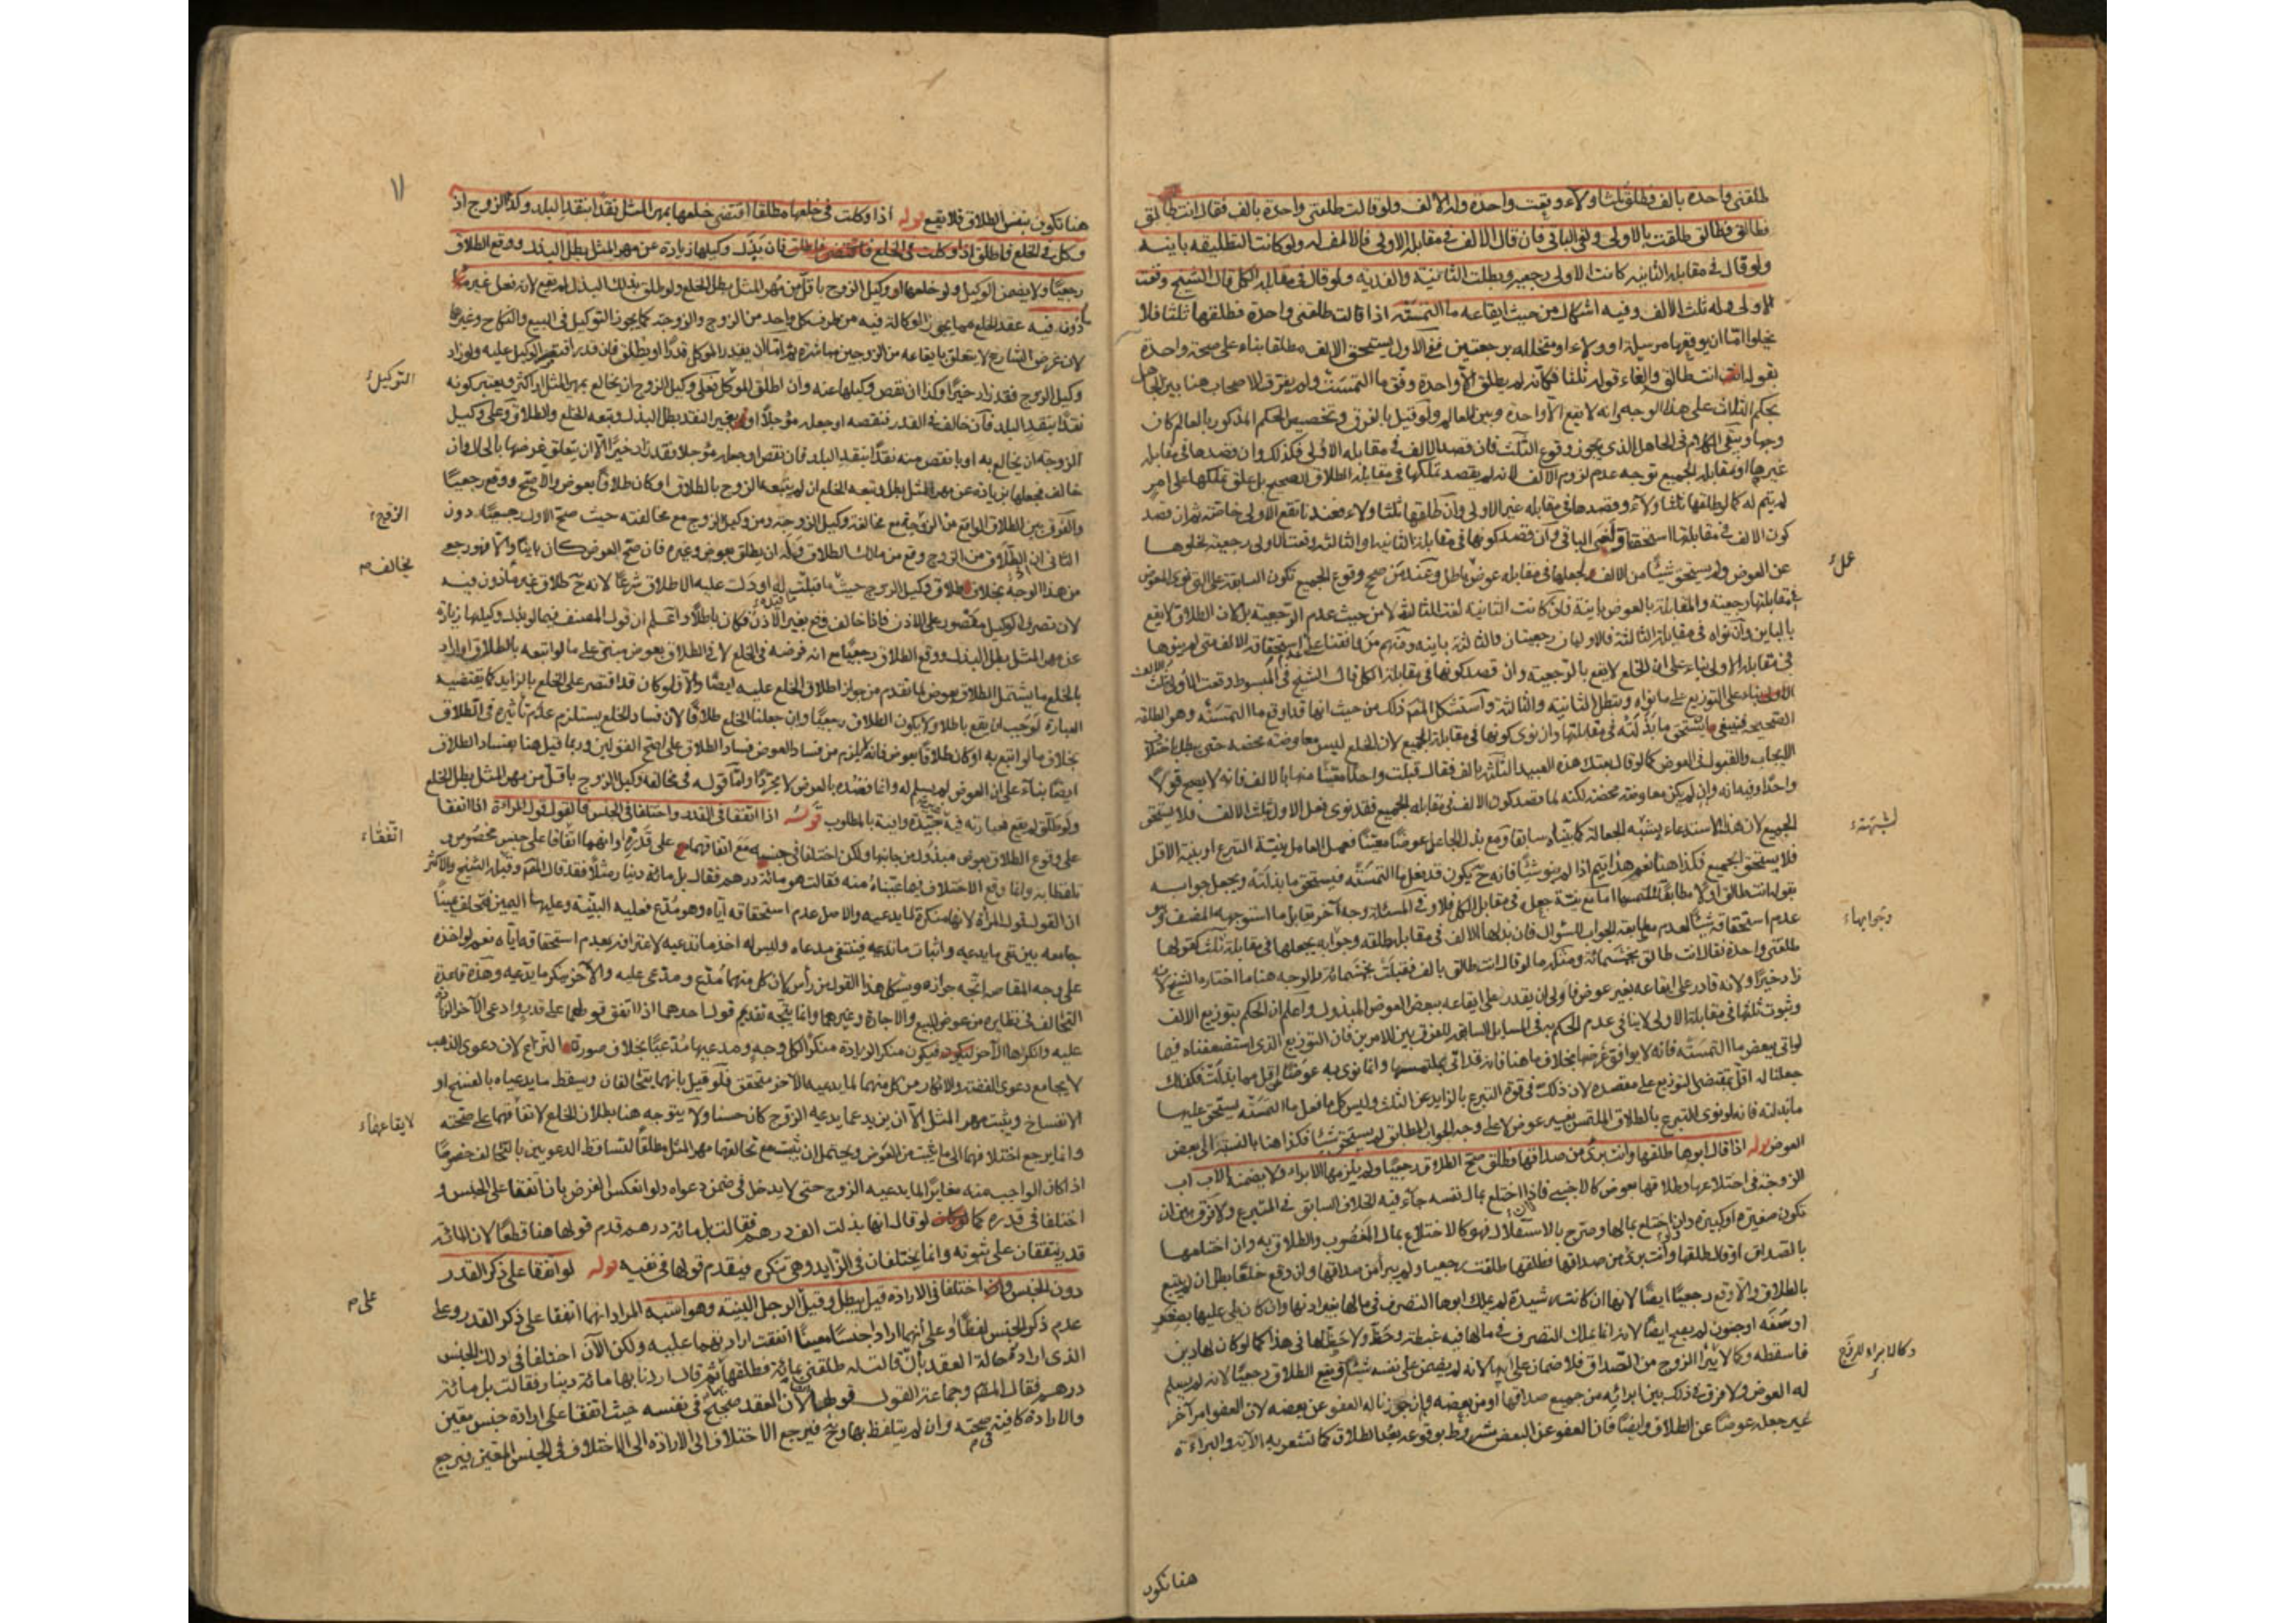 طلقني واحدة بالف فطلق ثلثا ولاء وقعت واحدة وله الالف ولو قالت طلقني واحدة بالف فقال انت طالق
فطالق فطالق طلقت بالاولى ولغى الباقي فان قال الالف في مقابلة الاولى فالالف له ولو كانت التطليقة باينة
ولو قال في مقابلة الثانية كانت الاولى رجعية وبطلت الثانية والفدية ولو قال في مقابلة الكل قال الشيخ وقعت
الاولى وله ثلث الالف وفيه اشكال من حيث ايقاعه ما التمسته اذا قالت طلقني واحدة فطلقها ثلثا فلا
يخلو اما ان يوقعها مرسلة او ولاء او متخللة برجعتين ففي الاول يستحق الالف مطلقا بناء على صحة واحدة
بقوله انت طالق والغاء قوله ثلثا فكانه لم يطلق الا واحدة وفق ما التمست ولم يفرق الاصحاب هنا بين الجاهل
بحكم الثلاث على هذا الوجه وانه لا يقع الا واحدة وبين العالم ولو قيل بالفرق وتخصيص الحكم المذكور بالعالم كان
وجها ويبقى الكلام في الجاهل الذي يجوز وقوع الثلث فان قصد الالف في مقابلة الاولى فكذلك وان قصدها في مقابلة
غيرها او مقابلة الجميع توجه عدم لزوم الالف لانه لم يقصد تملكها في مقابلة الطلاق الصحيح بل علق تملكها على امر
لم يتم له كما لو طلقها ثلثا ولاء وقصدها في مقابلة غير الاولى وان طلقها ثلثا ولاء فعندنا تقع الاولى خاصة ثم ان قصد
كون الالف في مقابلتها استحقها ولغى الباقي وان قصد كونها في مقابلة الثانية او الثالثة وقعت الاولى رجعية لخلوها
عن العوض ولم يستحق شيئا من الالف لجعلها في مقابلة عوض باطل وعند من صحح وقوع الجميع تكون السابقة على التي نوى العوض
في مقابلتها رجعية والمقابلة بالعوض باينة فان كانت الثانية لغت الثالثة لا من حيث عدم الرجعية بل لان الطلاق لا يقع
بالباين وان نواه في مقابلة الثالثة فالاوليان رجعيتان والثالثة باينة ومنهم من وافقنا على عدم استحقاقه الالف متى لم ينوها
في مقابلة الاولى بناء على ان الخلع لا يقع بالرجعية وان قصد كونها في مقابلة الكل قال الشيخ في المبسوط وقعت الاولى بثلث الالف
بناء على التوزيع على ما نواه وتبطل الثانية والثالثة واستشكل المص ذلك من حيث انها قد اوقع ما التمسته وهو الطلقة
الصحيحة فينبغي ان يستحق ما بذلته في مقابلتها وان نوى كونها في مقابلة الجميع لان الخلع ليس معاوضة محضة حتى يبطل باختلاف
الايجاب والقبول في العوض كما لو قال بعتك هذه العبيد الثلثة بالف فقال قبلت واحدا معينا منها بالالف فانه لا يصح قولا
واحدا وفيه انه وان لم يكن معاوضة محضة لكنه لما قصد كون الالف في مقابلة الجميع فقد نوى فعل الاول بثلث الالف فلا يستحق
الجميع لان هذا الاستدعاء يشبه الجعالة كما بيناه سابقا ومع بذل الجاعل عوضا معينا فعمل العامل بنية التبرع او بنية الاقل
فلا يستحق الجميع فكذا هنا نعم هذا يتم اذا لم ينو شيئا فانه ح يكون قد فعل ما التمسته فيستحق ما بذلته ويجعل جوابه
بقوله انت طالق اولا مطابقا لملتمسها اما مع نية جعله في مقابلة الكل فلا وفي المسئلة وجه آخر تقابل ما استوجهه المصنف وهو
عدم استحقاقه شيئا لعدم مطابقة الجواب السؤال فان بذلها الالف في مقابلة طلقة وجوابه بجعلها في مقابلة ثلث كقولها
طلقني واحدة فقال انت طالق بخمسمائة ومثله ما لو قال انت طالق بالف فقبلت بخمسمائة والوجه هنا ما اختاره الشيخ لانه
زاد خيرا ولانه قادر على ايقاعه بغير عوض فاولى ان يقدر على ايقاعه ببعض العوض المبذول واعلم ان الحكم بتوزيع الالف
وثبوت ثلثها في مقابلة الاولى لا ينافي عدم الحكم به في المسايل السابقة للفرق بين الامرين فان التوزيع الذي استضعفناه فيما
لو اتى ببعض ما التمسته فانه لا يوافق غرضها بخلاف ما هنا فانه قد اتى بملتمسها وانما نوى به عوضا اقل مما بذلت فكذلك
جعلنا له اقل بمقتضى التوزيع على مقصده لان ذلك في قوة التبرع بالزايد عن الثلث وليس كل ما فعل ما التمسته يستحق عليها
ما بذلته فانه لو نوى التبرع بالطلاق الملتمس بغير عوض لا على وجه الجواب المطابق لم يستحق شيئا فكذا هنا بالنسبة الى بعض
العوض قوله اذا قال ابوها طلقها وانت برئ من صداقها فطلق صح الطلاق رجعيا ولم يلزمها الابراء ولا يضمنه الاب اب
الزوجة في اختلاعها وطلاقها بعوض كالاجنبي فاذا اختلع بمال نفسه جاء فيه الخلاف السابق في المتبرع ولا فرق بين ان
تكون صغيرة او كبيرة وان اختلع بمالها وصرح بالاستقلال فهو كالاختلاع بمال المغصوب والطلاق به وان اختلعها
بالصداق او قال طلقها وانت برئ من صداقها فطلقها طلقت رجعيا ولم يبرأ من صداقها وان وقع خلعا بطل ان لم يتبع
بالطلاق والا وقع رجعيا ايضا لانها ان كانت رشيدة لم يملك ابوها التصرف في مالها بغير اذنها وان كان يلي عليها بصغر
او سفه او جنون لم يصح ايضا لانه انما يملك التصرف في مالها فيه غبطة وحظ ولا حظ لها في هذا كما لو كان لها دين
فاسقطه وكما لا يبرا الزوج من الصداق فلا ضمان على ابيها لانه لم يضمن على نفسه شيئا ويقع الطلاق رجعيا لانه لم يسلم
له العوض ولا فرق في ذلك بين ابرائه من جميع صداقها او من بعضه وان جوزنا له العفو عن بعضه لان العفو امر آخر
غير جعله عوضا عن الطلاق وايضا فان العفو عن البعض مشروط بوقوعه بعد الطلاق كما تشعر به الآية والبراءة
عملا
لشبهة
وجوابها
وكان الابراء
هنا تكون
١١
هنا تكون بنفس الطلاق فلا يقع قوله اذا وكلت في خلعها مطلقا اقتضى خلعها بمهر المثل نقدا بنقد البلد وكذا الزوج اذا
وكل في الخلع فاطلق فان بذل وكيلها زيادة عن مهر المثل بطل البذل ووقع الطلاق
رجعيا ولا يضمن الوكيل ولو خلعها وكيل الزوج باقل من مهر المثل بطل الخلع ولو طلق بذلك البذل لم يقع لانه فعل غير ما
ذون فيه عقد الخلع مما يجوز الوكالة فيه من طرف كل واحد من الزوج والزوجة كما يجوز التوكيل في البيع والنكاح وغيرها
لان غرض الشارع لا يتعلق بايقاعه من الزوجين مباشرة ثم اما ان يقدر الموكل قدرا او يطلق فان قدر اقتصر الوكيل عليه ولو زاد
وكيل الزوج فقد زاد خيرا وكذا ان نقص وكيلها عنه وان اطلق الموكل فعلى وكيل الزوج ان يخالع بمهر المثل او اكثر ويعتبر كونه
نقدا بنقد البلد فان خالف في القدر فنقصه او جعله مؤجلا او بغير النقد بطل البذل وتبعه الخلع والطلاق وعلى وكيل
الزوجة ان يخالع به او بانقص منه نقدا بنقد البلد فان نقص او جعله مؤجلا فقد زاد خيرا الا ان يتعلق غرضها بالحلول وان
خالف فجعلها بزيادة عن مهر المثل بطل وتبعه الخلع ان لم يتبعه الزوج بالطلاق او كان طلاقا بعوض والا صح ووقع رجعيا
والفرق بين الطلاق الواقع من الزوج مع مخالفة وكيل الزوجة ومن وكيل الزوج مع مخالفته حيث صح الاول رجعيا دون
الثاني ان الطلاق من الزوج وقع من مالك الطلاق وله ان يطلق بعوض وغيره فان صح العوض كان باينا والا فهو رجعي
من هذا الوجه بخلاف طلاق وكيل الزوج حيث ما قبلت له او دلت عليه الاطلاق شرعا لانه ح طلاق غير مأذون فيه
لان تصرف الوكيل مقصور على الاذن فاذا خالف وقع بغير الاذن فكان باطلا واعلم ان قول المصنف فيما لو بذل وكيلها زيادة
عن مهر المثل بطل البذل ووقع الطلاق رجعيا مع انه فرضه في الخلع لا في الطلاق بعوض مبني على ما لو اتبعه بالطلاق او اراد
بالخلع ما يشتمل الطلاق بعوض لما تقدم من جواز اطلاق الخلع عليه ايضا والا فلو كان قد اقتصر على الخلع بالزايد كما يقتضيه
العبارة لوجب ان يقع باطلا ولا يكون الطلاق رجعيا وان جعلنا الخلع طلاقا لان فساد الخلع يستلزم عدم تأثيره في الطلاق
بخلاف ما لو اتبع به او كان طلاقا بعوض فانه لا يلزم من فساد العوض فساد الطلاق على اصح القولين وربما قيل هنا بفساد الطلاق
ايضا بناء على ان العوض لم يسلم له وانما قصده بالعوض لا مجردا واما قوله في مخالفة وكيل الزوج باقل من مهر المثل بطل الخلع
ولو طلق لم يقع فعبارته فيه جيدة وافية بالمطلوب قوله اذا اتفقا في القدر واختلفا في الجنس فالقول قول المراءة اذا اتفقا
على وقوع الطلاق بعوض مبذول من جانبها ولكن اختلفا في جنسه مع اتفاقهما على قدره او انهما اتفاقا على جنس مخصوص وتلفظا به
وانما وقع الاختلاف فيما عيناه منه فقالت هو مائة درهم فقال بل مائة دينار مثلا فقد قال المص وقبله الشيخ والاكثر
ان القول قول المرأة لانها منكرة لما يدعيه والاصل عدم استحقاقه اياه وهو مدع فعليه البينة وعليها اليمين فتحلف يمينا
جامعة بين نفي ما يدعيه واثبات ما تدعيه فينتفي مدعاه وليس له اخذ ما تدعيه لاعترافه بعدم استحقاقه اياه نعم لو اخذه
على وجه المقاصة اتجه جوازه ويشكل هذا القول من رأس لان كل منهما مدع ومدعى عليه والآخر ينكر ما يدعيه وهذه قاعدة
التحالف في نظايره من عوض البيع والاجارة وغيرهما وانما يتجه تقديم قول احدهما اذا اتفق قولهما على قدر وادعى الآخر الزيادة
عليه وانكرها الآخر فيكون منكر الزيادة منكرا لكل وجه ومدعيها مدعيا بخلاف صورة النزاع لان دعوى الذهب
لا يجامع دعوى الفضة والانكار من كل منهما لما يدعيه الآخر متحقق فلو قيل بانهما يتحالفان ويسقط ما يدعياه بالفسخ او
الانفساخ ويثبت مهر المثل الا ان يزيد عما يدعيه الزوج كان حسنا ولا يتوجه هنا بطلان الخلع لاتفاقهما على صحته
وانما يرجع اختلافهما الى ما يثبت من العوض ويحتمل ان يثبت مع تحالفهما مهر المثل مطلقا لتساقط الدعويين بالتحالف خصوصا
اذا كان الواجب منه مغايرا لما يدعيه الزوج حتى لا يدخل في ضمن دعواه ولو انعكس الفرض بان اتفقا على الجنس و
اختلفا في قدره كما لو قال انها بذلت الف درهم فقالت بل مائة درهم قدم قولها هنا قطعا لان المائة
قدر يتفقان على ثبوته وانما يختلفان في الزايد وهي تنكره فيقدم قولها في نفيه قوله لو اتفقا على ذكر القدر
دون الجنس واختلفا في الارادة قيل يبطل وقيل على الرجل البينة وهو اشبه المراد انهما اتفقا على ذكر القدر وعلى
عدم ذكر الجنس لفظا وعلى انهما ارادا جنسا معينا اتفقت ارادتهما عليه ولكن الآن اختلفا في ذلك الجنس
الذي اراداه حالة العقد بان قالت له طلقني بمائة فطلقها بها ثم قال اردنا بها مائة دينار فقالت بل مائة
درهم فقال المص وجماعة القول قولها لان العقد صحيح في نفسه حيث اتفقا على ارادة جنس معين
والارادة كافية في صحته وان لم يتلفظ بها وح فيرجع الاختلاف الى الارادة الى الاختلاف في الجنس المعين فيرجع
التوكيل
الزوج
يخالف
اتفقا
لايقاعها
على